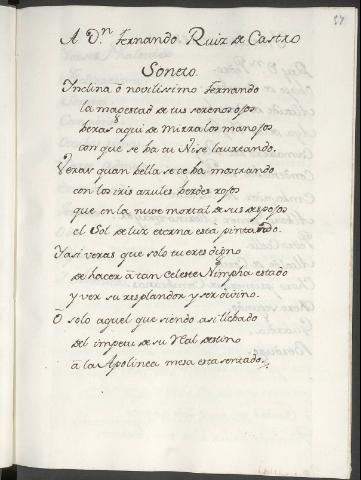 57
A D.ⁿ Fernando Ruiz de Castro
Soneto.
Inclina ô novilissimo Fernando
la magestad de tus serenos ojos
beras aqui de Mirra los manojos
con que se ha tu Nise laureando.
Veras quan bella se te ha mostrando
con los iris azules berdes rojos
que en la nuve mortal de sus despojos
el Sol de luz eterna esta pintando.
Yasi veras que solo tu eres digno
de hacer â tan Celeste Nimpha estado
y ver su resplandor y ser divino.
Ô solo aquel que siendo asi llebado
del impetu de su Real destino
â la Apolinea mesa esta sentado.